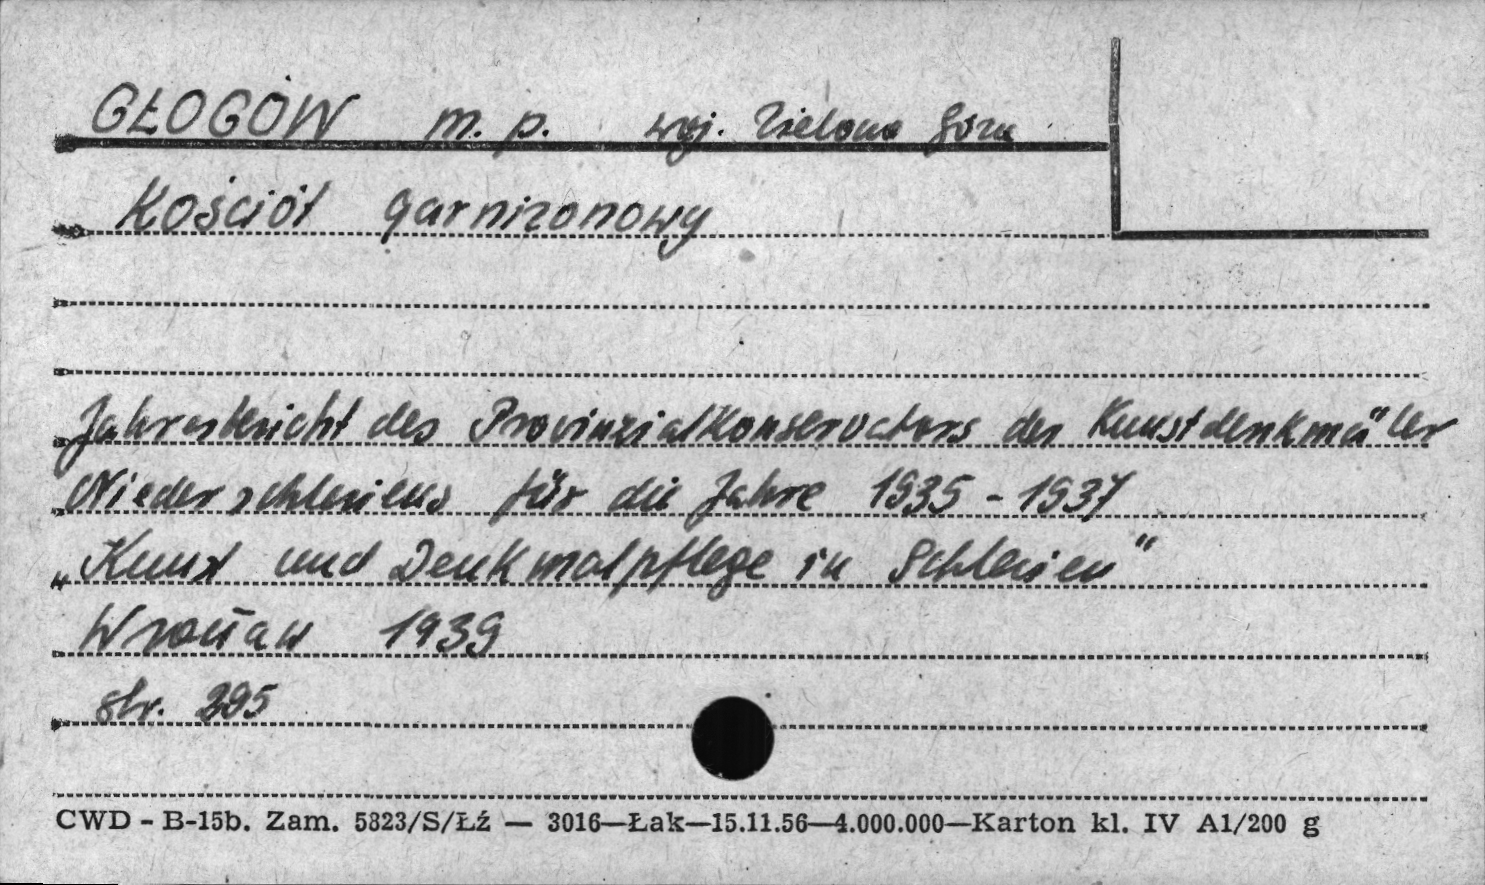 GŁOGÓW m. p. woj. Zielona Góra
Kościół garnizonowy
Jahresbericht des Provinzialkonservators der Kunstdenkmäler
Niederschlesiens für die Jahre 1935 - 1937
„Kunst und Denkmalpflege in Schlesien"
Wrocław 1939
str. 395
CWD - B-15b. Zam. 5823/S/Łź — 3016—Łak—15.11.56—4.000.000—Karton kl. IV A1/200 g